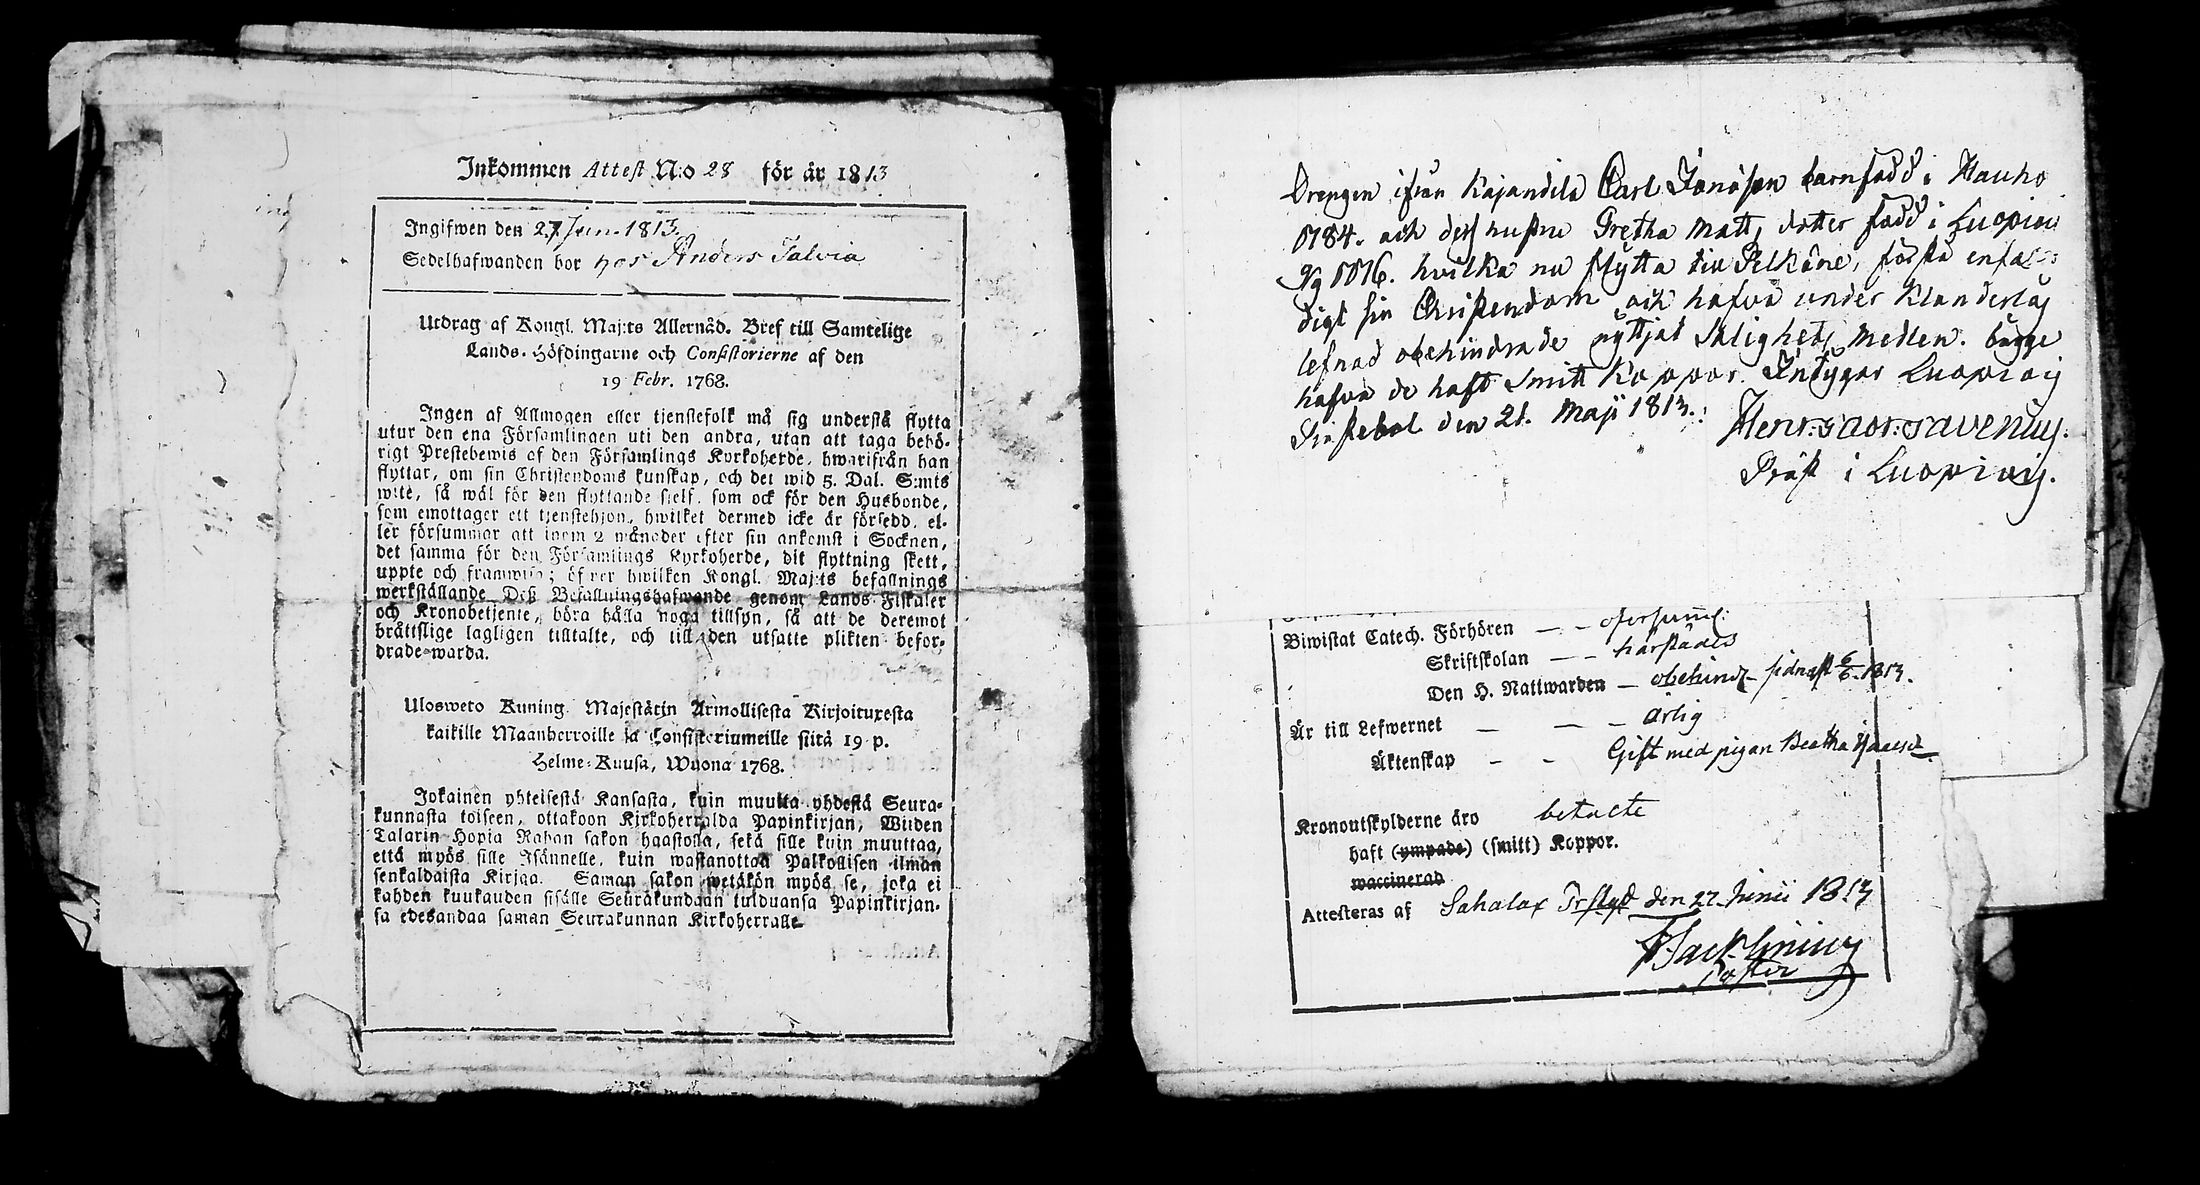 Inkommen Attest N:o 28 för år 1813
Ingifwen den 27 Jun. 1813.
Sedelhafwanden bor hos Anders Talvia
Utdrag af Kongl. Maj:ts Allernåd. Bref till Samtelige
Lands-Höfdingarne och Consistorierne af den
19 Febr. 1768.
Ingen af Allmogen eller tjenstefolk må sig understå flytta
utur den ena Församlingen uti den andra, utan att taga behö-
rigt Prestebewis af den Församlings Kyrkoherde, hwarifrån han
flyttar, om sin Christendoms kunskap, och det wid 5. Dal. S:mts
wite, så wäl för den flyttande sielf, som ock för den Husbonde,
som emottager ett tjenstehjon, hwilket dermed icke är försedd, el-
ler försummar att inom 2 månader efter sin ankomst i Socknen,
det samma för den Församlings Kyrkoherde, dit flyttning skett,
uppte och framwisa; öfwer hwilken Kongl. Maj:ts befallnings
werkställande Deß Befallningshafwande genom Lands-Fiskaler
och Kronobetjente, böra hålla noga tillsyn, så att de deremot
bråttslige lagligen tilltalte, och till den utsatte plikten befor-
drade warda.
Ulosweto Kuning. Majestätin Armollisesta Kirjoituxesta
kaikille Maanherroille ja Consistoriumeille siitä 19 p.
Helme-Kuusa, Wuona 1768.
Jokainen yhteisestä Kansasta, kuin muutta yhdestä Seura-
kunnasta toiseen, ottakoon Kirkoherralda Papinkirjan, Wiiden
Talarin Hopia Rahan sakon haastolla, sekä sille kuin muuttaa,
että myös sille Isännelle, kuin wastanottaa Palkollisen ilman
senkaldaista Kirjaa. Saman sakon wetäkön myös se, joka ei
kahden kuukauden sisälle Seurakundaan tulduansa Papinkirjan-
sa edesandaa saman Seurakunnan Kirkoherralle
Drengen ifrån Kajandila Carl Jonasson barnfödd i Hauho
1784. och dess hustru Gretha Matts dotter född i Luopiois
hvilka nu flytta till Pelkäne, förstå enfal-
digt sin Christendom och hafva under Klanderlös
lefnad obehindrade nyttjat Salighets medlen. bägge
hafva de haft Smitt Koppor. Intygar Luopiois
Prästebol den 21. Maji 1813.
Henr. Gabr. Gavenius.
Präst i Luopiois.
Biwistat Catech. Förhören — - oförsuml.
Skriftskolan — - härstädes
Den H. Nattwarden — obehindr. sidnast 6/6 1813.
Är till Lefwernet — — - ärlig
Äktenskap - - Gift med pigan Beatha
Kronoutskylderne äro betalte
haft (ympade) (smitt) Koppor.
waccinerad
Attesteras af Sahalax Prstgd den 27 Junii 1813